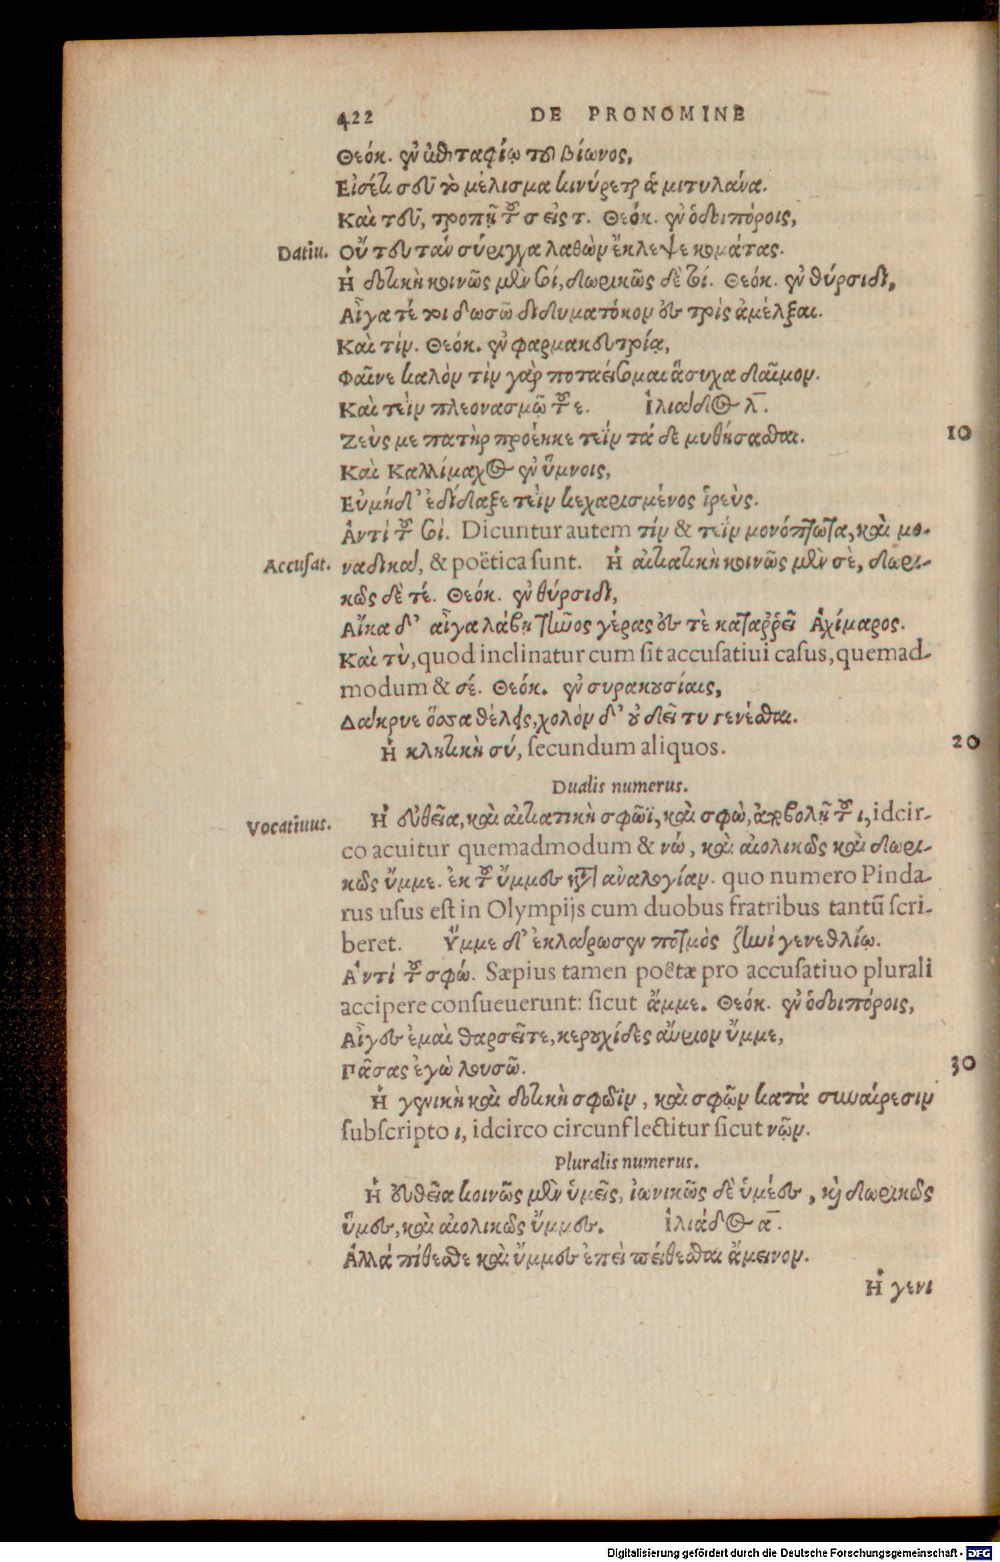 422 DE PRONOMINE
Θεόκ. ἐν ἐπιταφίῳ τοῦ Βίωνος,
Εἰσέτι σοῦ τὸ μέλισμα κινύρεται ἁ μιτυλάνα.
Καὶ τοῦ, τροπῇ τοῦ σ εἰς τ. Θεόκ. ἐν ὁδοιπόροις,
Datiu. Οὔ του τὰν σύριγγα λαθὼν ἔκλεψε κομάτας.
Ἡ δοτικὴ κοινῶς μὲν σοί, δωρικῶς δὲ τοί. Θεόκ. ἐν θύρσιδι,
Αἶγα τέ τοι δωσῶ διδυματόκον ἐς τρὶς ἀμέλξαι.
Καὶ τίν. Θεόκ. ἐν φαρμακευτρίᾳ,
Φαῖνε καλὸν τὶν γὰρ ποταείσομαι ἅσυχα δαῖμον.
Καὶ τεῒν πλεονασμῷ τοῦ ε. Ἰλιάδος λ̅.
Ζεὺς με πατὴρ προέηκε τεῒν τάδε μυθήσασθαι. 10
Καὶ Καλλίμαχος ἐν ὕμνοις,
Εὐμήδης ἐδίδαξε τεῒν κεχαρισμένος ἱρεὺς.
Ἀντὶ τοῦ σοί. Dicuntur autem τίν & τεῒν μονόπτωτα, καὶ μο-
Accusat. ναδικαί, & poëtica sunt. Ἡ αἰτιατικὴ κοινῶς μὲν σὲ, δωρι-
κῶς δὲ τέ. Θεόκ. ἐν θύρσιδι,
Αἴκα δ' αἶγα λάβῃ τῆνος γέρας ἐς τὲ καταῤῥεῖ Ἀχίμαρος.
Καὶ τὺ, quod inclinatur cum sit accusatiui casus, quemad-
modum & σέ. Θεόκ. ἐν συρακουσίαις,
Δάκρυε ὅσσα θέλεις, χολὸν δ' οὐ δεῖ τυ γενέσθαι.
Ἡ κλητικὴ σύ, secundum aliquos. 20
Dualis numerus.
Vocatiuus. Ἡ εὐθεῖα, καὶ αἰτιατικὴ σφῶϊ, καὶ σφὼ, ἀποβολῇ τοῦ ι, idcir-
co acuitur quemadmodum & νώ, καὶ αἰολικῶς καὶ δωρι-
κῶς ὔμμε. ἐκ τοῦ ὔμμες κατ' ἀναλογίαν. quo numero Pinda-
rus usus est in Olympijs cum duobus fratribus tantũ scri-
beret. Υ̓́μμε δ' ἐκλάρωσεν πότμὸς ζηνὶ γενεθλίῳ.
Ἀντὶ τοῦ σφώ. Sæpius tamen poëtæ pro accusatiuo plurali
accipere consueuerunt: sicut ἄμμε. Θεόκ. ἐν ὁδοιπόροις,
Αἶγες ἐμαὶ θαρσεῖτε, κερουχίδες αὔριον ὔμμε,
Πᾶσας ἐγὼ λουσῶ. 30
Ἡ γενικὴ καὶ δοτικὴ σφῶϊν, καὶ σφῷν κατὰ συναίρεσιν
subscripto ι, idcirco circunflectitur sicut νῷν.
Pluralis numerus.
Ἡ εὐθεῖα κοινῶς μὲν ὑμεῖς, ἰωνικῶς δὲ ὑμέες, καὶ δωρικῶς
ὕμες, καὶ αἰολικῶς ὔμμες. Ἰλιάδος α̅.
Ἀλλὰ πίθεσθε καὶ ὔμμες ἐπεὶ πείθεσθαι ἄμεινον.
Ἡ γενι
Digitalisierung gefördert durch die Deutsche Forschungsgemeinschaft - DFG